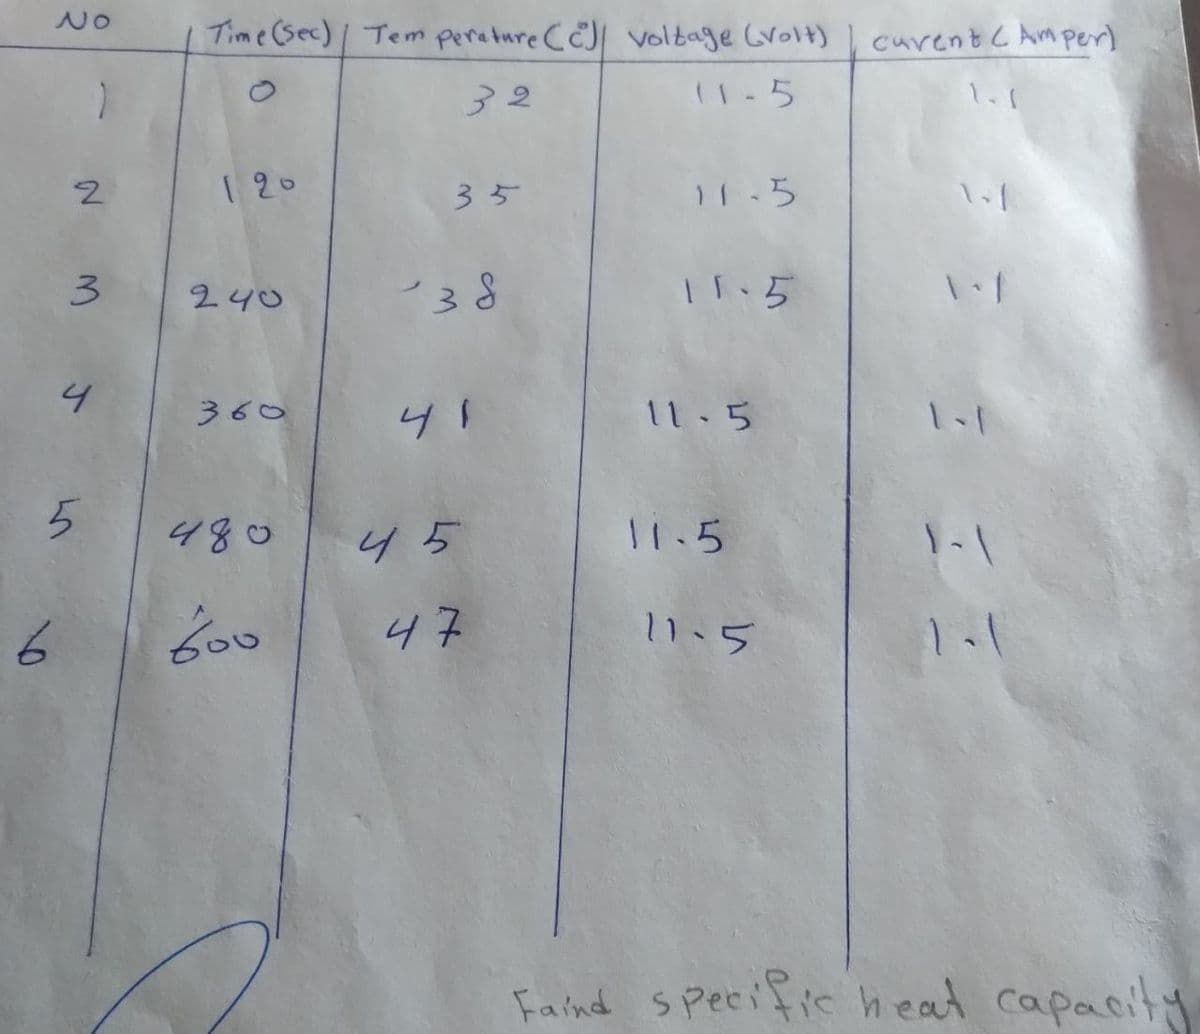 NO Time (Sec) Temperature (C°) voltage (volt) curent (Amper)
1 0 32 11.5 1.1
2 120 35 11.5 1.1
3 240 38 11.5 1.1
4 360 41 11.5 1.1
5 480 45 11.5 1.1
6 600 47 11.5 1.1
Faind specific heat capacity